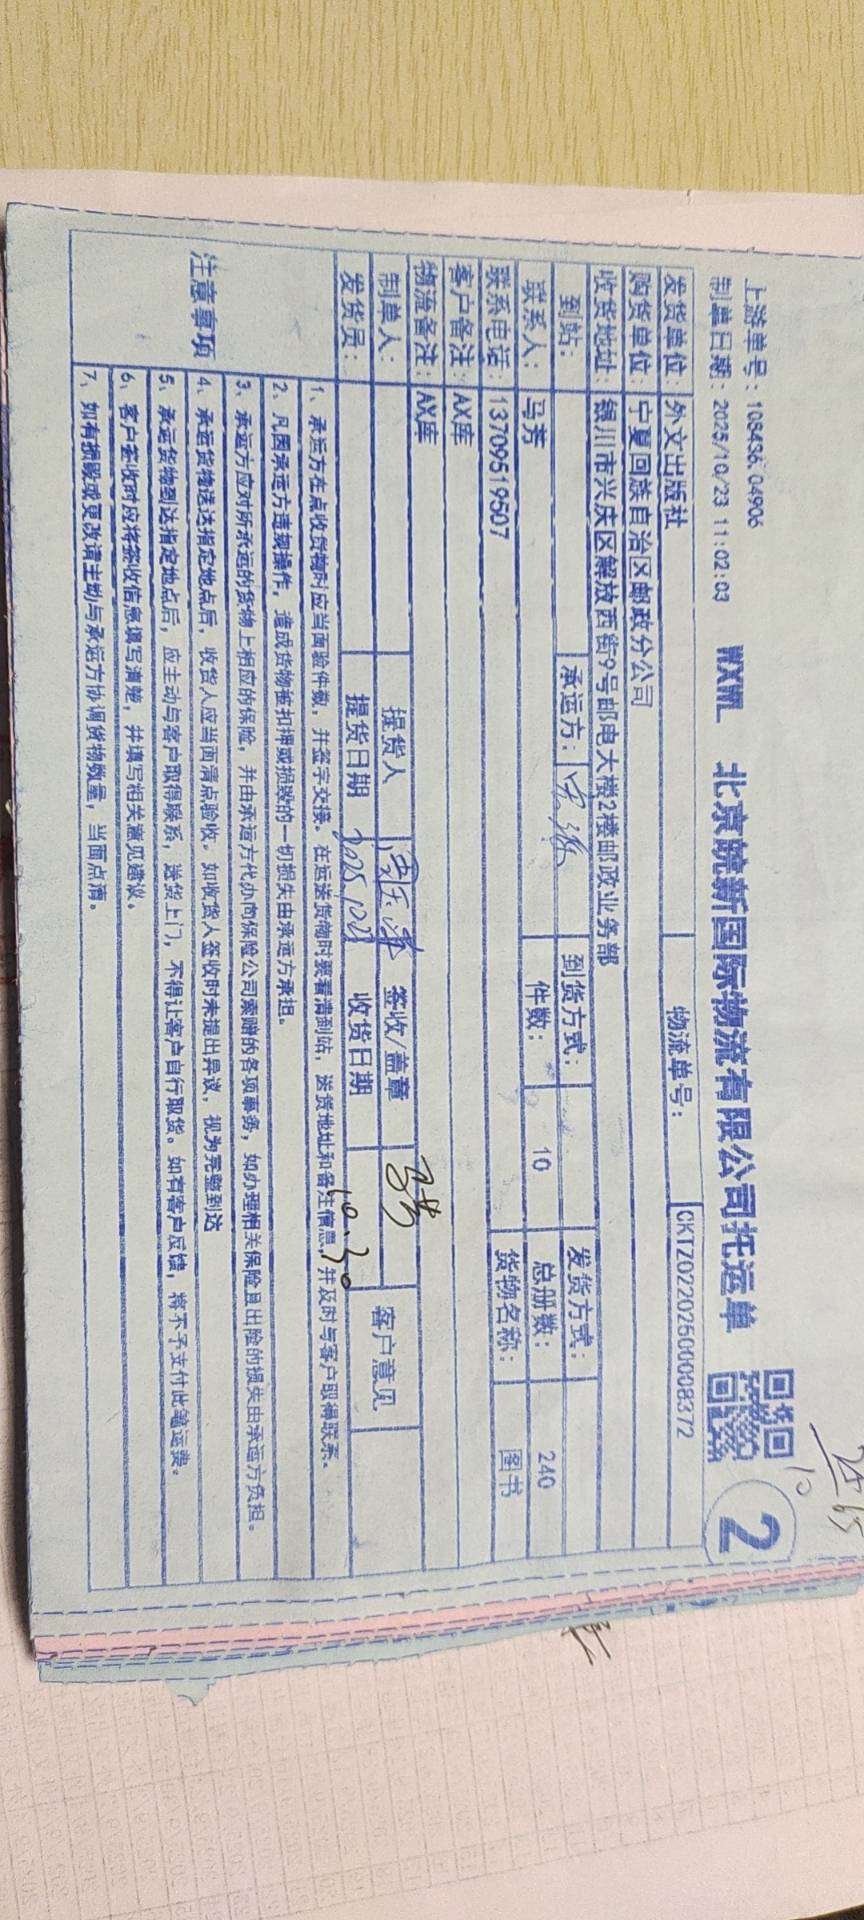 上游单号：108436 04906
制单日期：2025/10/23 11:02:03 WXWL 北京皖新国际物流有限公司托运单 2
发货单位：外文出版社 物流单号：CKTZ02202500008372
购货单位：宁夏回族自治区邮政分公司
收货地址：银川市兴庆区解放西街9号邮电大楼2楼邮政业务部
到站： 承运方： 到货方式： 发货方式：
联系人：马芳 件数：10 总册数：240
联系电话：13709519507 货物名称：图书
客户备注：AX库
物流备注：AX库
制单人： 提货人 签收/盖章 客户意见
发货员： 提货日期 收货日期 10.30
注意事项
1、承运方在点收货物时应当面验件数，并签字交接。在运送货物时要看清到站，送货地址和备注信息，并及时与客户取得联系。
2、凡因承运方违规操作，造成货物被扣押或损毁的一切损失由承运方承担。
3、承运方应对所承运的货物上相应的保险，并由承运方代办向保险公司索赔的各项事务，如办理相关保险且出险的损失由承运方负担。
4、承运货物送达指定地点后，收货人应当面清点验收。如收货人签收时未提出异议，视为完整到达
5、承运货物到达指定地点后，应主动与客户取得联系，送货上门，不得让客户自行取货。如有客户反馈，将不予支付此笔运费。
6、客户签收时应将签收信息填写清楚，并填写相关意见建议。
7、如有损毁或更改请主动与承运方协调货物数量，当面点清。